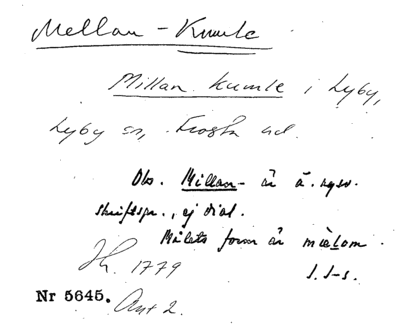 Mellan-Kumle
Millan kumle i Lyby,
Lyby sn, Frosta hd.
Obs. Millan- är ä. nysv.
skriftspr., ej dial.
Målets form är mælom.
I. I-s.
Jb. 1779
Nr 5645. Avt 2.